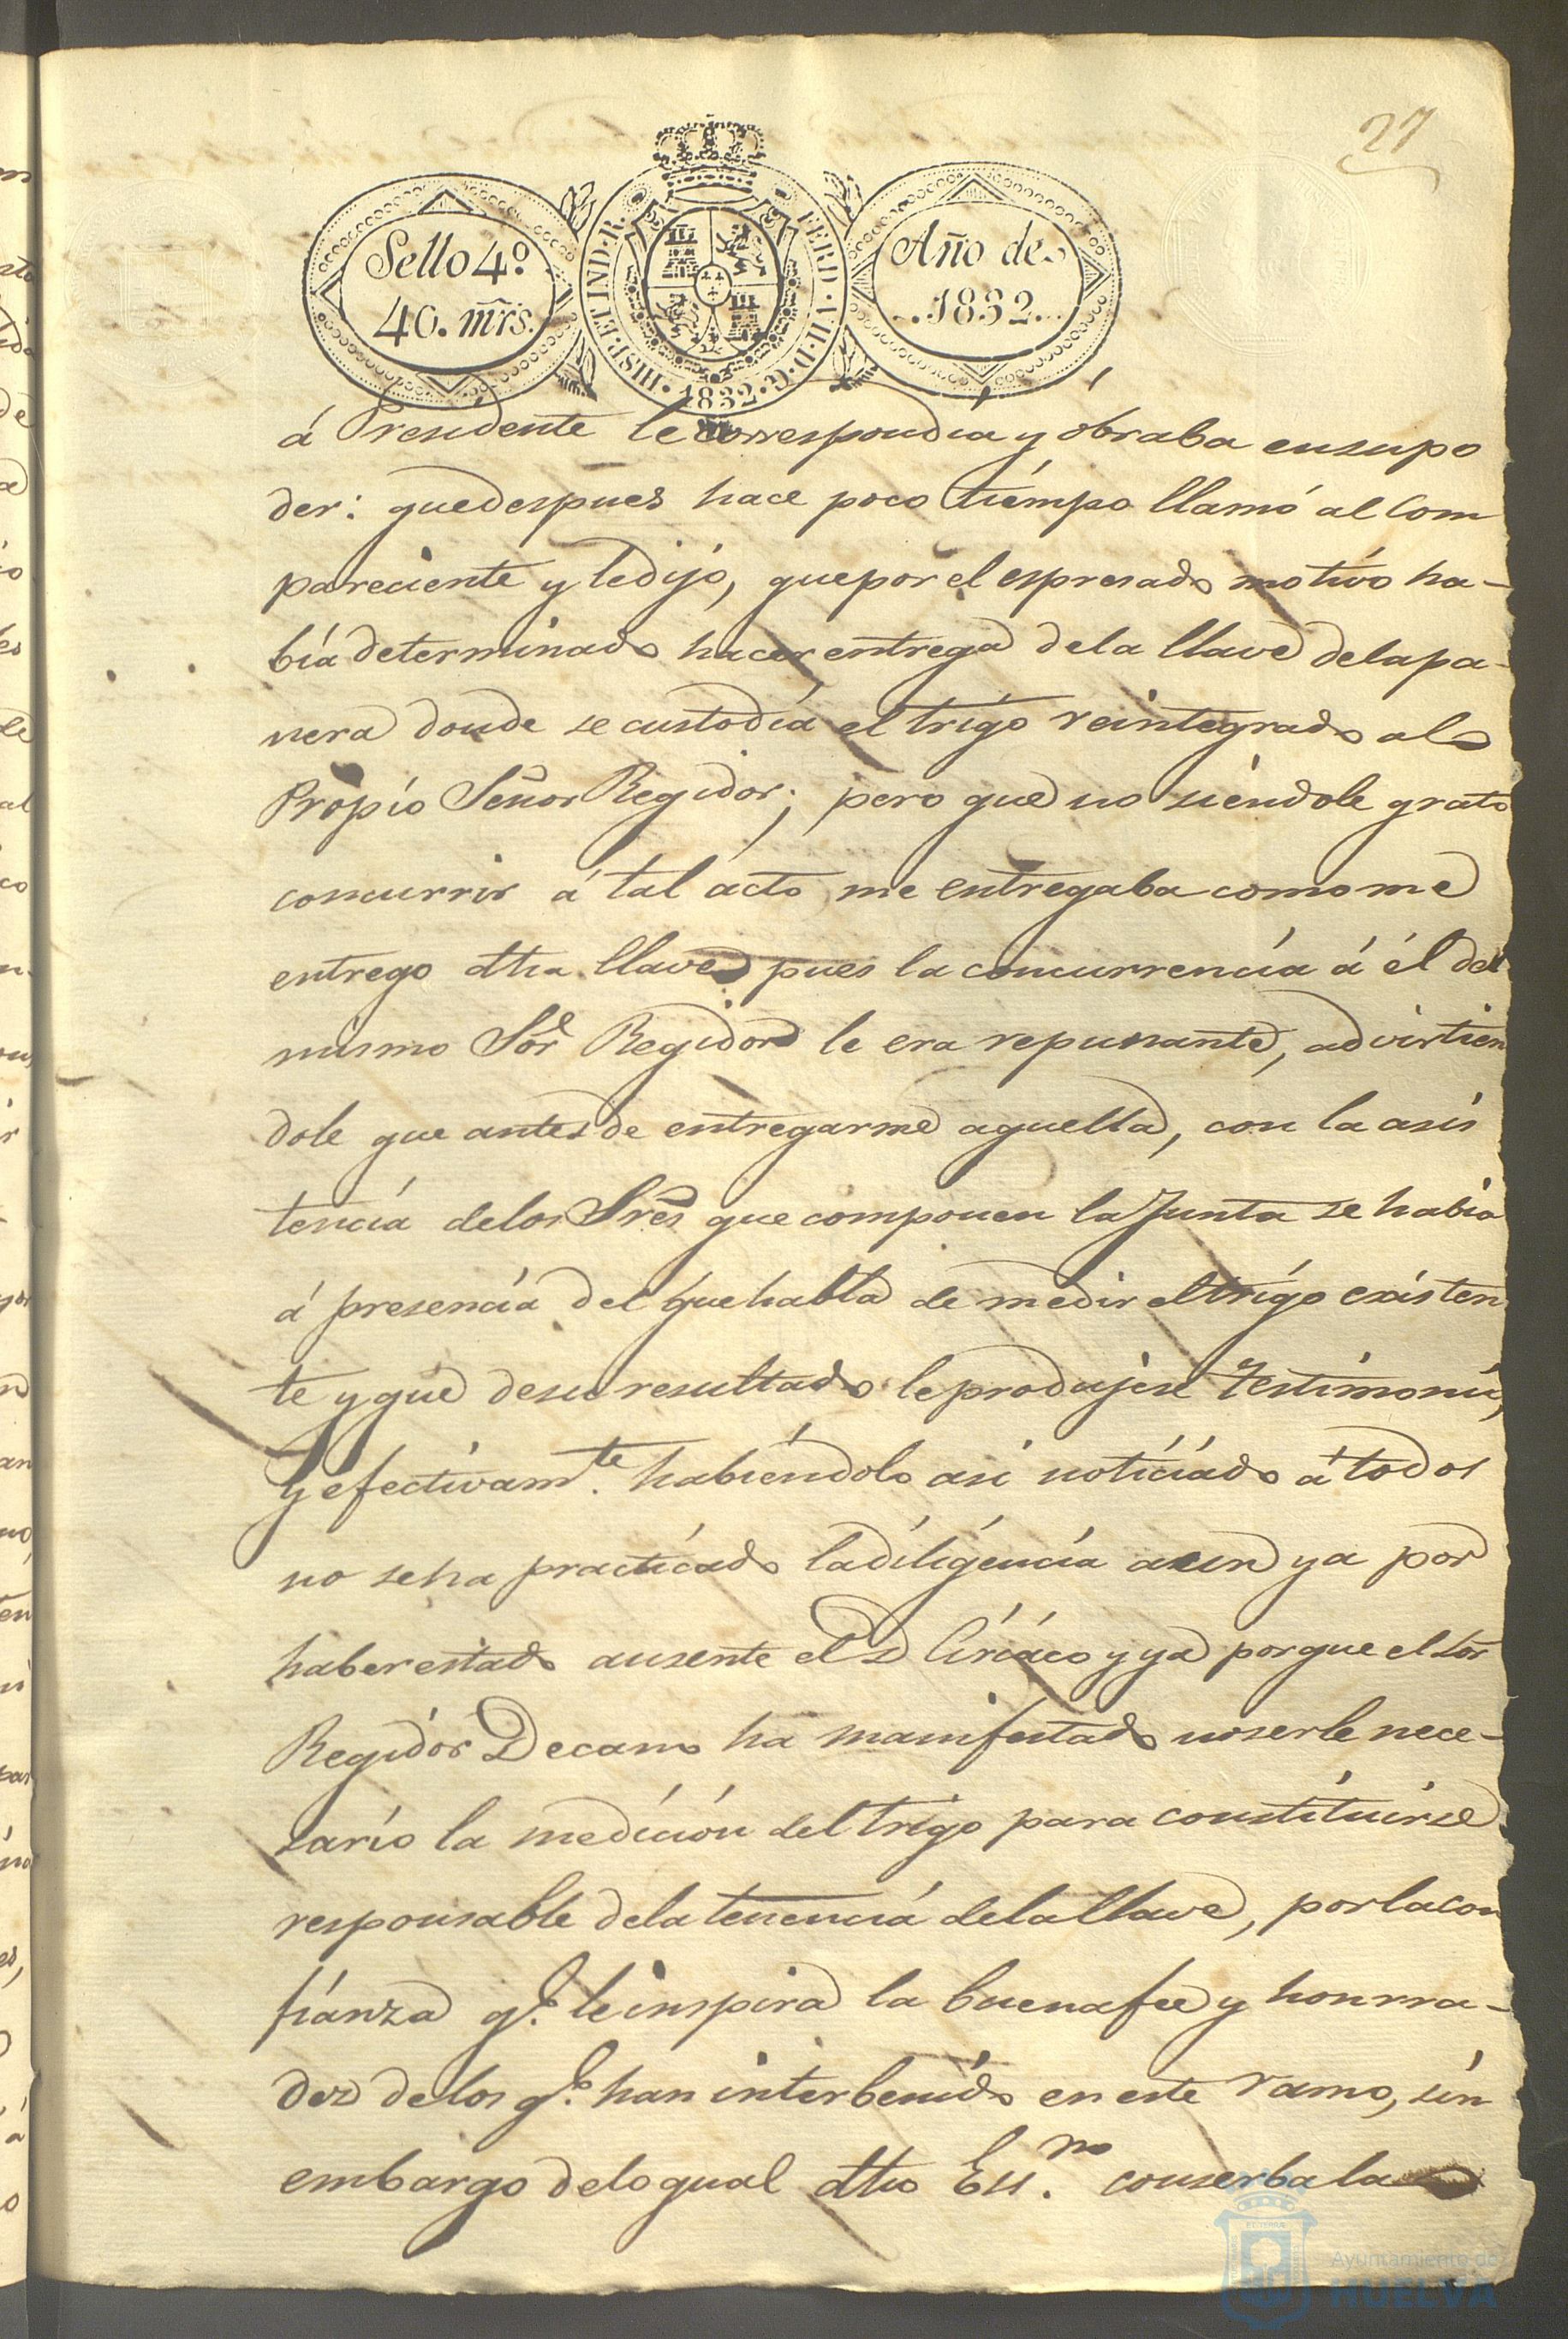 27
Sello 4º
40. mrs.
HISP. ET IND. R. FERD. VII. D. G. 1832.
Año de
1832.
á Presidente le correspondía y obraba ensupo
der: quedespues hace poco tiémpo llamó al Com
pareciente y ledijó, quepor el espresado motívo ha-
bía determinado hacer entrega dela llave delapa-
nera donde se custodía el trígo reintegrado al
Propío Señor Regidor; pero que no siéndole grato
concurrir á tal acto me entregaba comome
entrego dha llave pues la concurrencía á él del
mismo Sor Regidor le era repunante, advirtien
dole que antes de entregarme aquella, con la asis
tencía delos Sres que componen la Junta se había
á presencía del que habla de medir eltrígo exísten
te y que desu resultado leprodujese Testimonío,
y efectívamte. habiéndolo asi notíciádo á todos
no seha practícado ladilígencía aun ya por
haberestado ausente el D Círiáco y ya porque el Sor
Regidór Decano ha manifestado noserle nece-
sarío la medición del trígo para constítuirse
responsable dela tenencía delallave, porlacon
fíanza qe. leinspira la buenafee y honrra-
dez delos qe. han interbenído en este ramo, sín
embargo deloqual dho Essno. conserbala
Ayuntamiento de
HUELVA